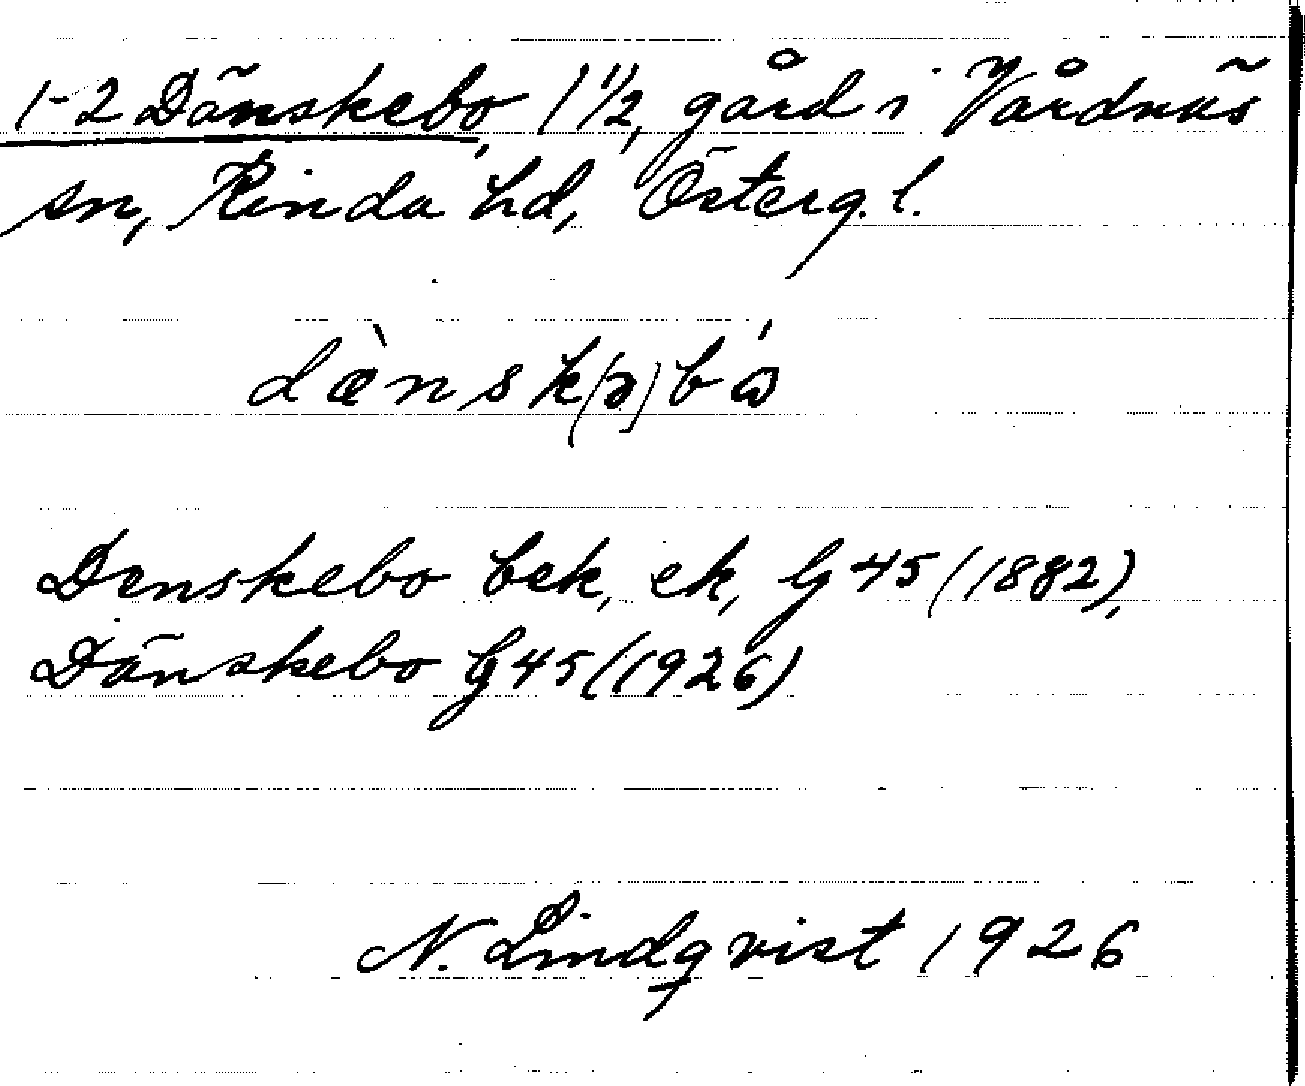 1-2 Dänskebo, 1 1/2, gård i Vårdnäs
sn, Kinda hd, Österg. l.
dæ̀nsk(ə)bó
Denskebo bek, ek, G 45 (1882),
Dänskebo G 45 (1926)
N. Lindqvist 1926